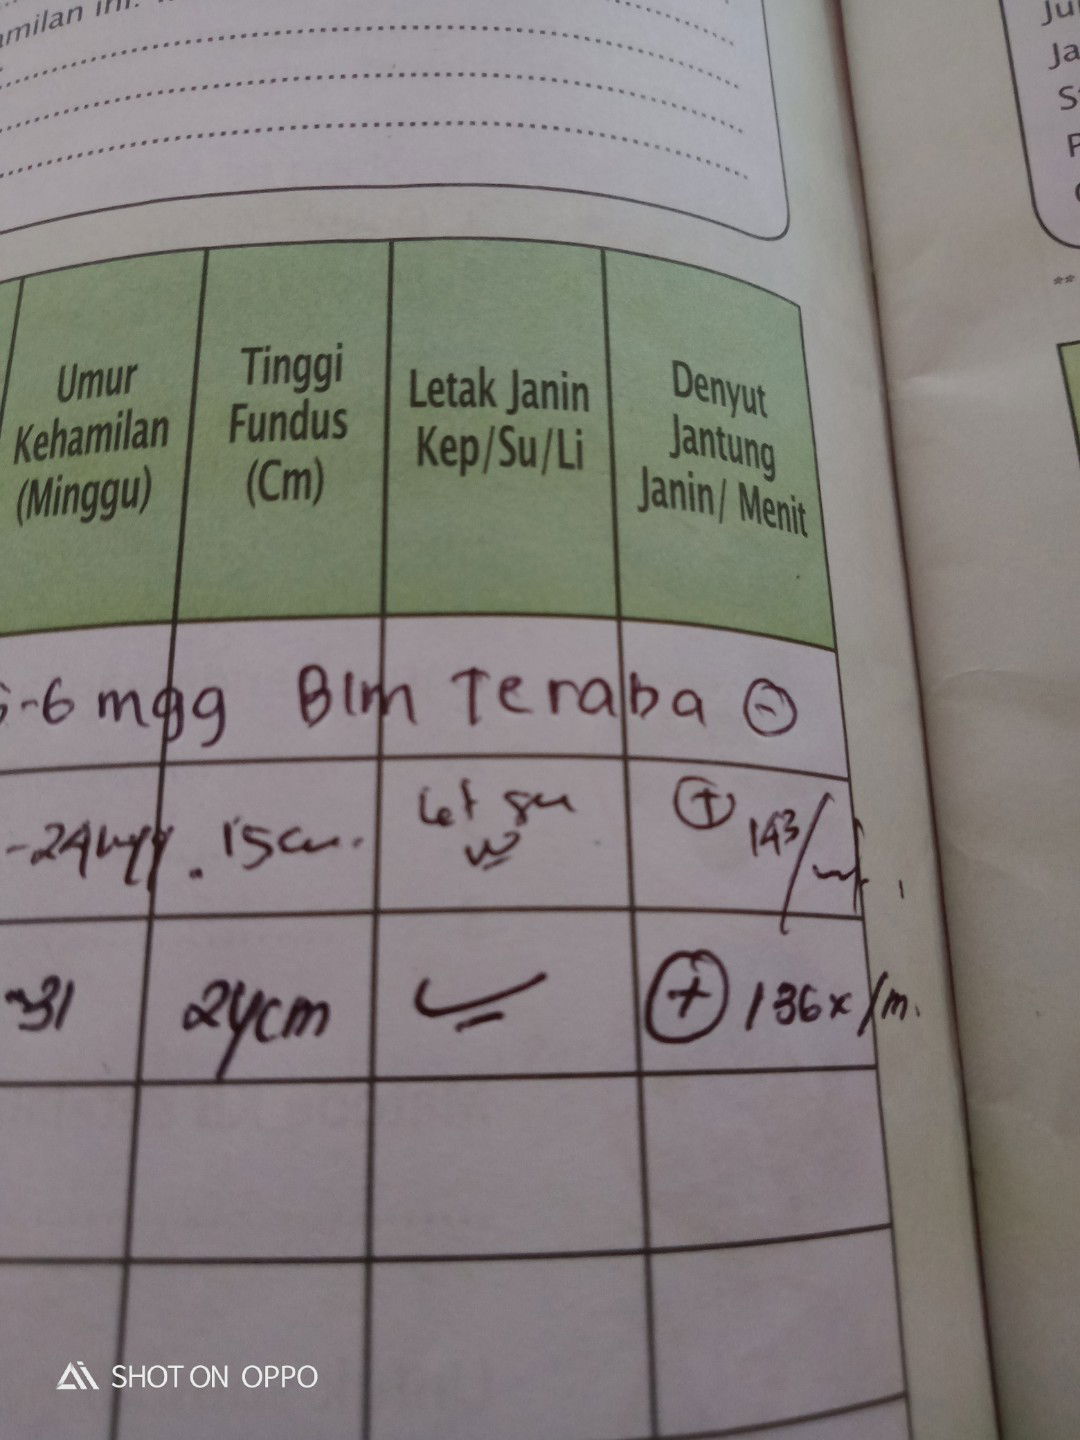 amilan ini.
Umur
Kehamilan
(Minggu)
Tinggi
Fundus
(Cm)
Letak Janin
Kep/Su/Li
Denyut
Jantung
Janin/ Menit
5-6 mgg Blm Teraba (-)
-24 mgg. 15cm.
let su
(+) 143/m.
~31 24cm (+) 136x/m.
Ju
Ja
S
P
**
SHOT ON OPPO